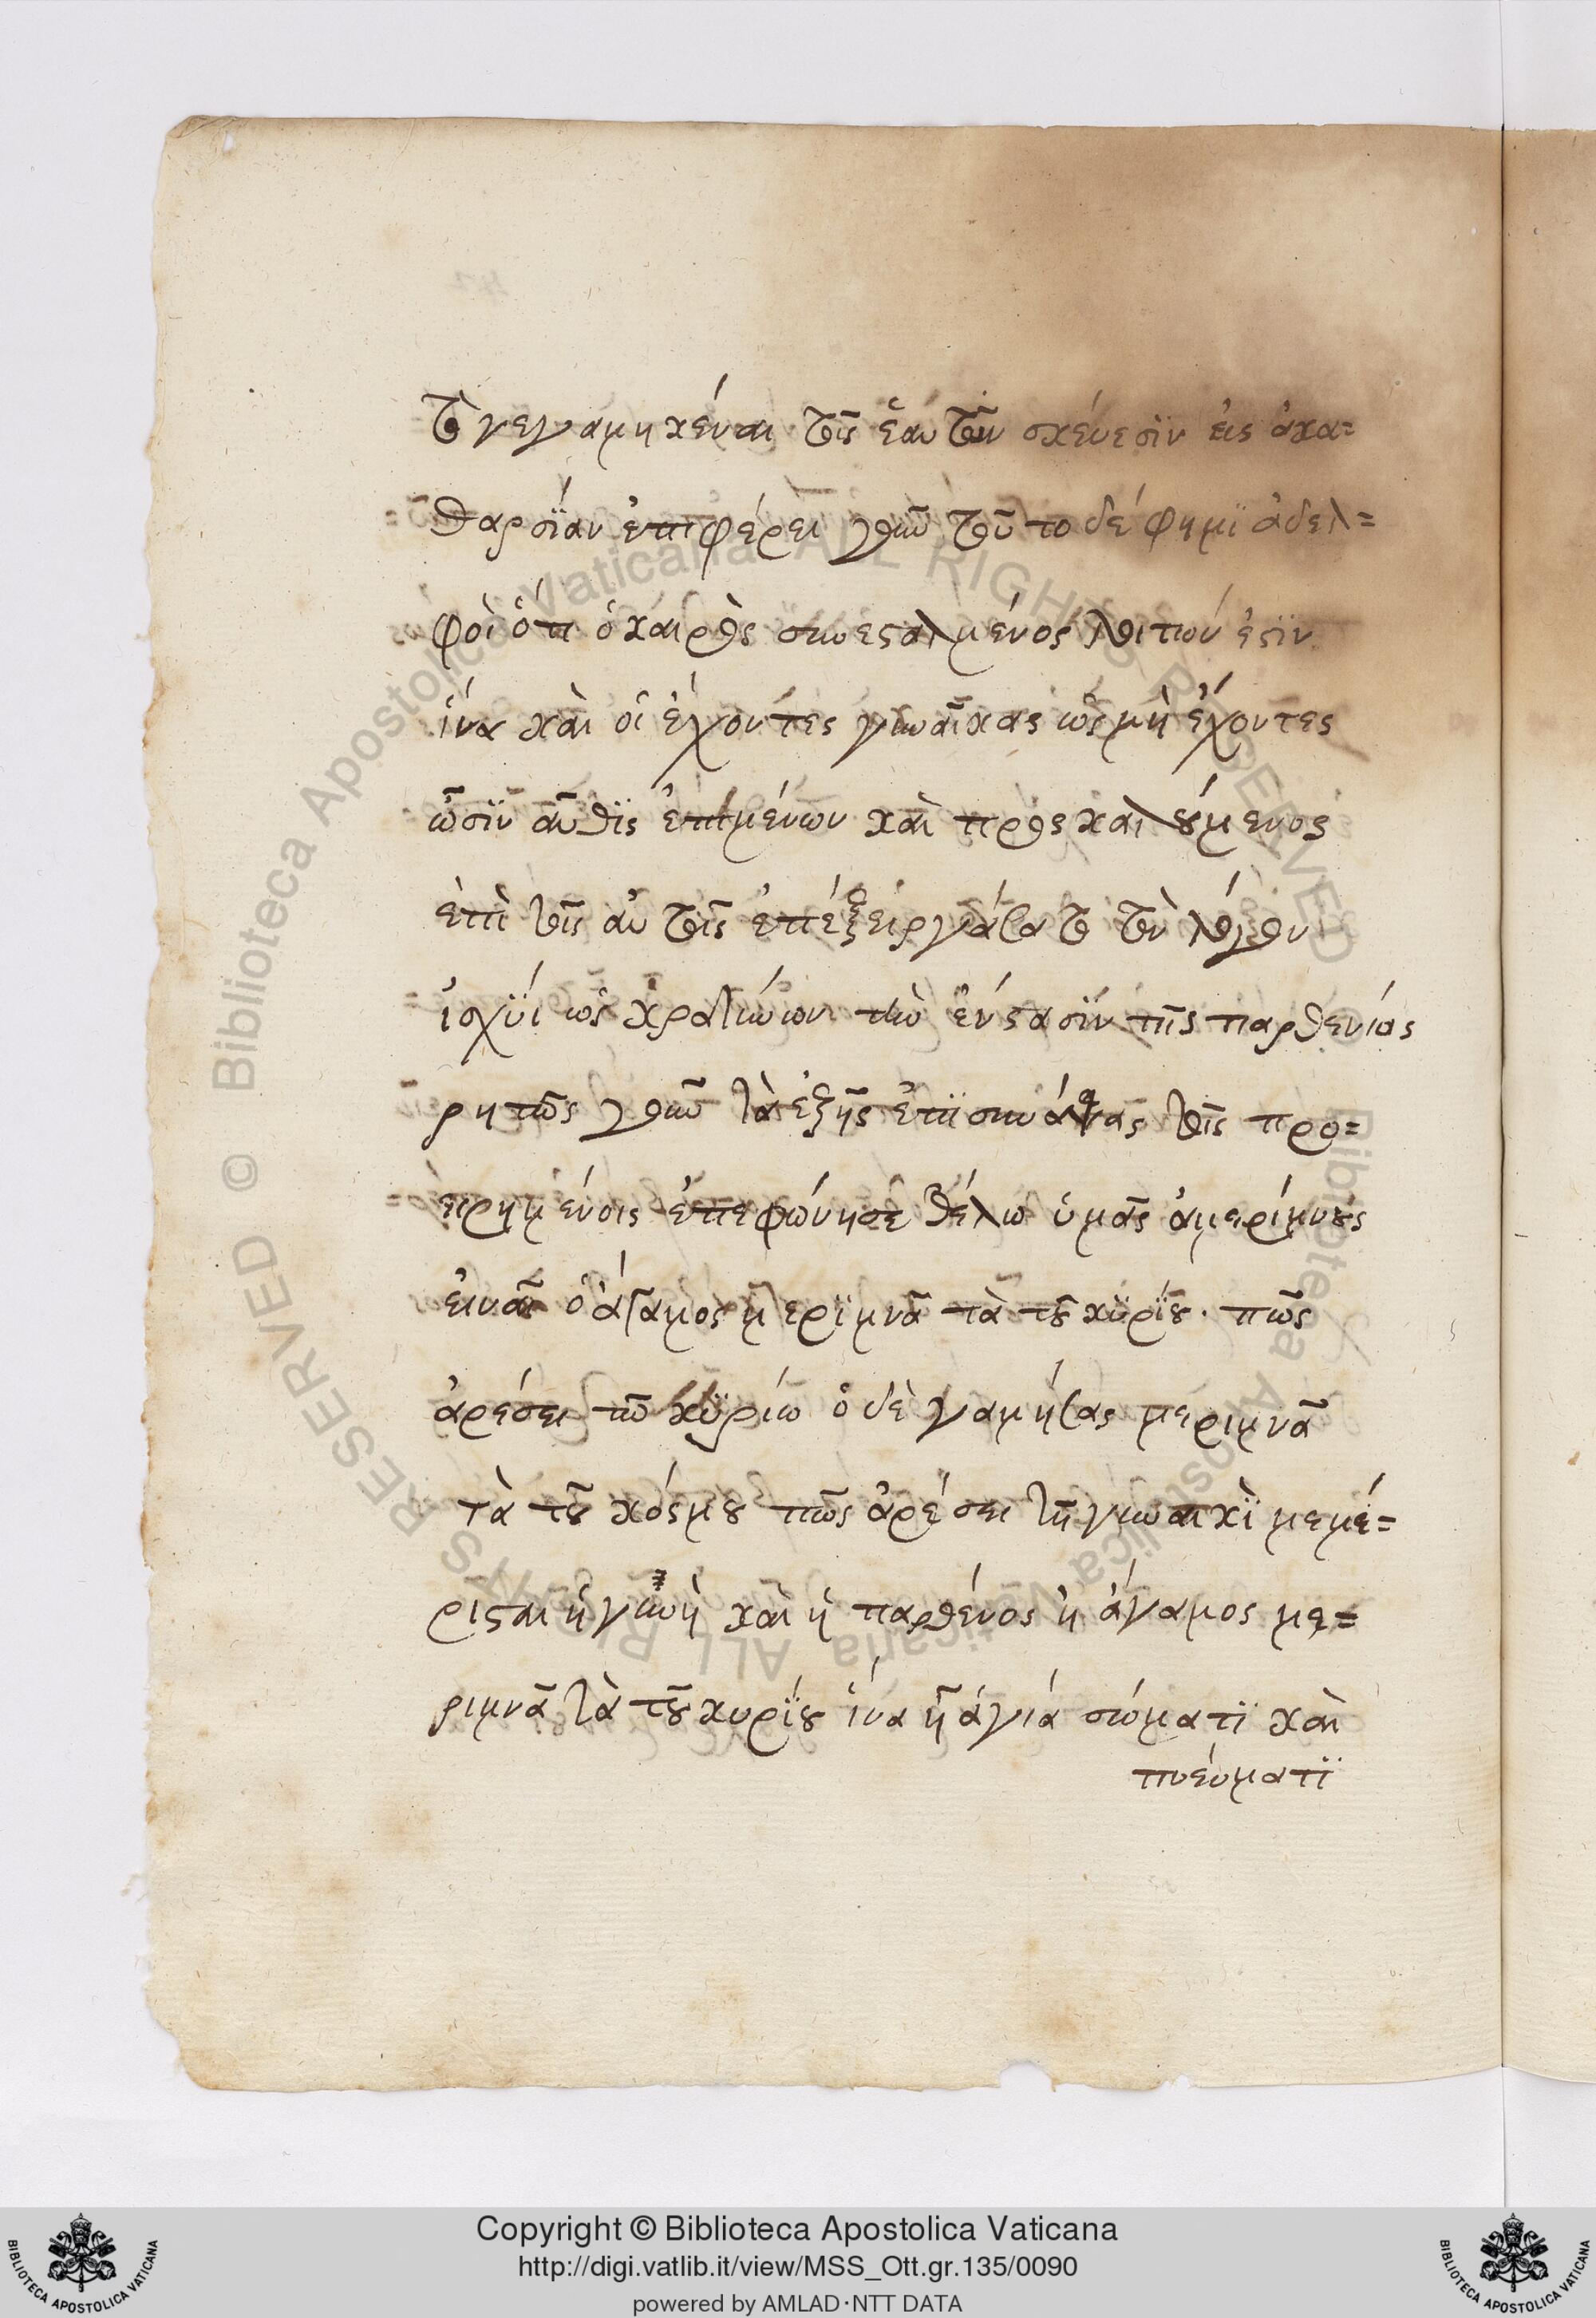 τὸ γεγαμηκέναι τοῖς ἑαυτῶν σκέυεσϊν εἰς ἀκα=
θαρσΐαν ἐπιφέρει γοῦν τοῦτο δέ φημϊ ἀδελ=
φοὶ ὅτι ὁ καιρὸς συνεσταλμένος λοιπὸν ἐστϊν
ἵνα καὶ οἱ ἔχοντες γυναῖκας ὡς μὴ ἔχοντες
ὦσϊν αὖθϊς ἐπιμένων καὶ προσκαλούμενος
ἐπὶ τοῖς αὐτοῖς ἐπέξειργάσατο τὸν λόγον
ἰσχϋΐ ὡς κρατύνων τὴν ἔνστασϊν τῆς παρθενίας
ῥητῶς γοῦν τὰ ἑξῆς ἐπϊσυνάψας τοῖς προ=
ειρημένοις ἐπεφώνησε θέλω ὑμᾶς ἀμερίμνους
εἶναι ὁ ἄγαμος μερϊμνᾶ τὰ τοῦ κϋρΐου· πῶς
ἀρέσει τῶ κϋρίω ὁ δὲ γαμήσας μεριμνᾶ
τὰ τοῦ κόσμου πῶς ἀρέσει τῆ γυναικϊ μεμέ=
ρισται ἡ γυνὴ καὶ ἡ παρθένος ἡ ἄγαμος με=
ριμνᾶ τὰ τοῦ κυρΐου ἵνα ἦ ἁγιά σώματϊ καὶ
πνέυματϊ
Copyright © Biblioteca Apostolica Vaticana
http://digi.vatlib.it/view/MSS_Ott.gr.135/0090
powered by AMLAD·NTT DATA